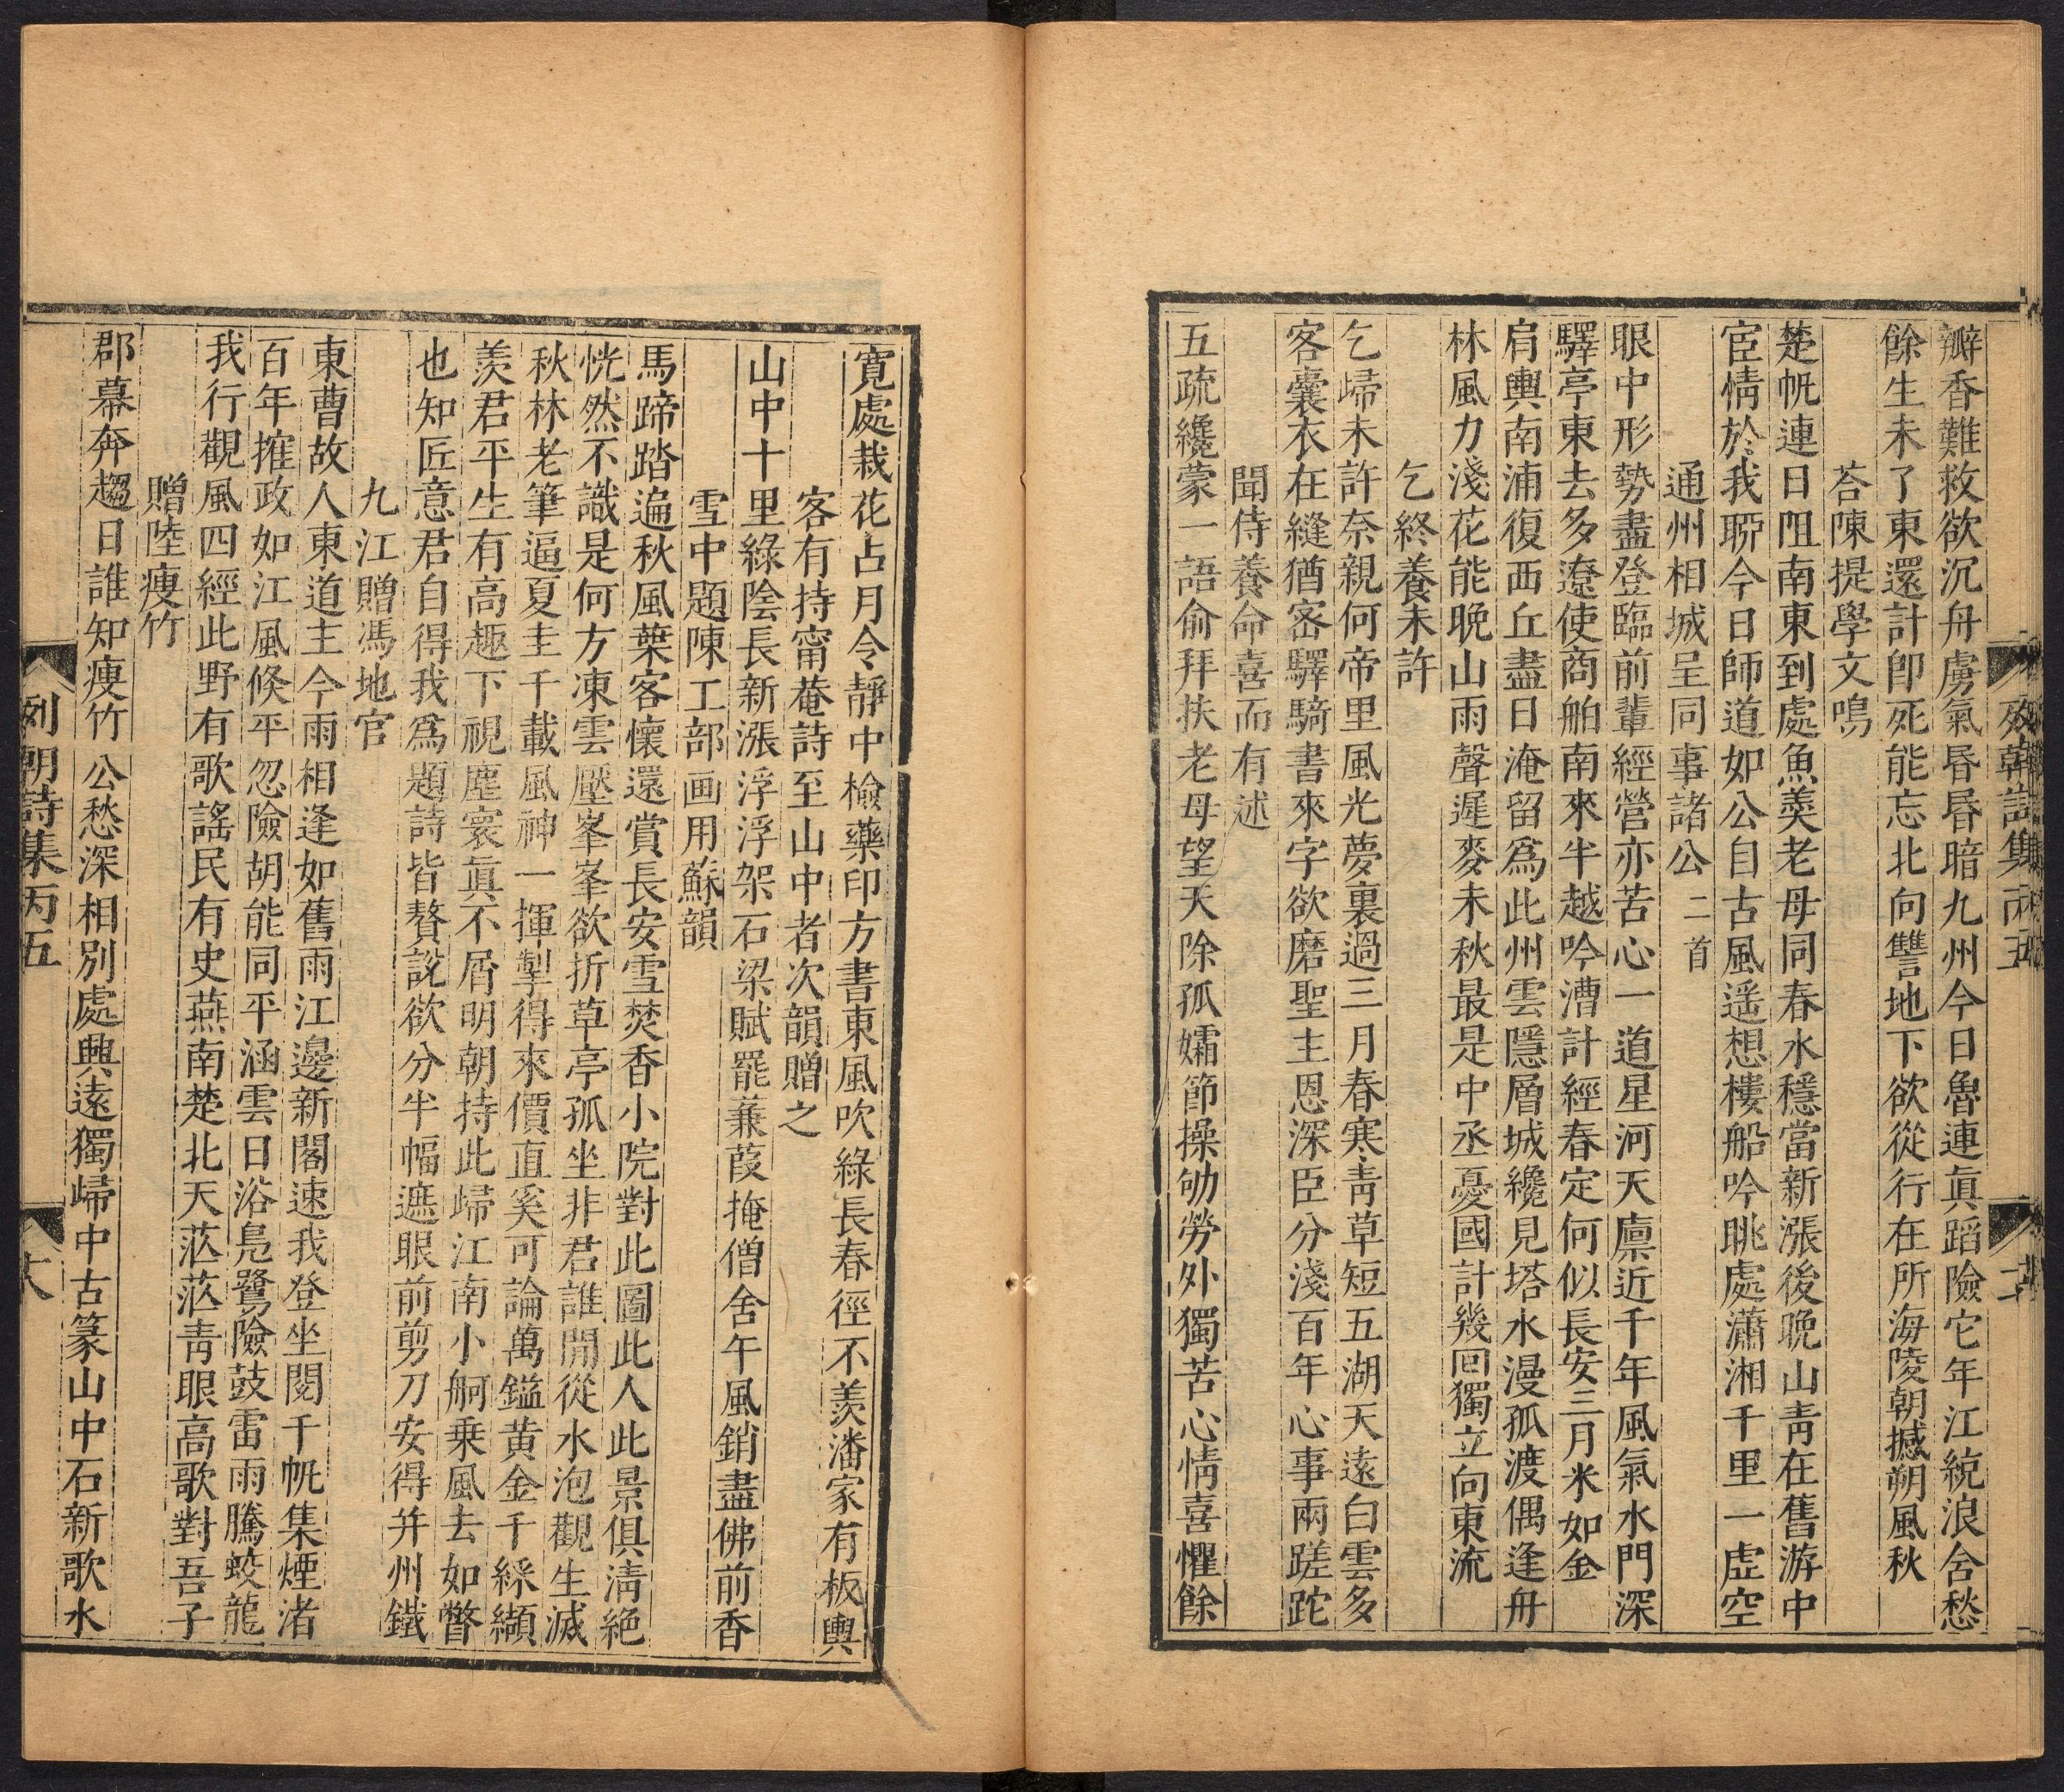 瓣香難救欲沉舟虜氣昏昏暗九州今日魯連眞蹈險它年江統浪合愁
餘生未了東還計卽死能忘北向讐地下欲從行在所海陵朝撼朔風秋
荅陳提學文鳴
楚帆連日阻南東到處魚羮老母同春水穩當新漲後晚山青在舊游中
宦情於我聊今日師道如公自古風遥想樓船吟眺處瀟湘千里一虛空
通州相城呈同事諸公二首
眼中形勢盡登臨前輩經營亦苦心一道星河天廪近千年風氣水門深
驛亭東去多遼使商舶南來半越吟漕計經春定何似長安三月米如金
肩輿南浦復西丘盡日淹留爲此州雲隱層城纔見塔水漫孤渡偶逢舟
林風力淺花能晚山雨聲遲麥未秋最是中丞憂國計幾回獨立向東流
乞終養未許
乞歸未許奈親何帝里風光夢裏過三月春寒青草短五湖天遠白雲多
客囊衣在縫猶密驛騎書來字欲磨聖主恩深臣分淺百年心事兩蹉跎
聞侍養命喜而有述
五疏纔蒙一語俞拜扶老母望天除孤孀節操劬勞外獨苦心情喜懼餘
寛處栽花占月令靜中檢藥印方書東風吹綠長春徑不羨潘家有板輿
客有持甯菴詩至山中者次韻贈之
山中十里綠陰長新漲浮浮架石梁賦罷蒹葭掩僧舍午風銷盡佛前香
雪中題陳工部画用蘇韻
馬蹄踏遍秋風葉客懷還賞長安雪焚香小院對此圖此人此景俱清絶
恍然不識是何方凍雲壓峯峯欲折草亭孤坐非君誰閒從水泡觀生滅
秋林老筆逼夏圭千載風神一揮掣得來價直奚可論萬鎰黄金千綵纈
羨君平生有高趣下視塵寰眞不屑明朝持此歸江南小舸乗風去如瞥
也知匠意君自得我爲題詩皆贅說欲分半幅遮眼前剪刀安得并州鐵
九江贈馮地官
東曹故人東道主今雨相逢如舊雨江邊新閣速我登坐閱千帆集煙渚
百年搉政如江風倏平忽險胡能同平涵雲日浴鳧鷺險鼓雷雨騰蛟龍
我行觀風四經此野有歌謠民有史燕南楚北天茫茫青眼高歌對吾子
贈陸痩竹
郡幕奔趨日誰知痩竹公愁深相別處興遠獨歸中古篆山中石新歌水
列朝詩集丙五